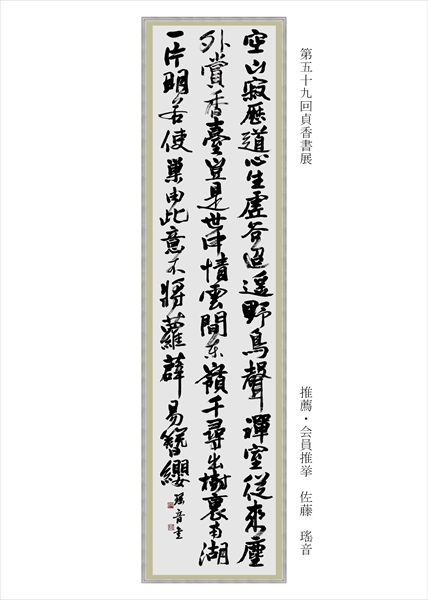 第五十九回貞香書展
推薦・会員推挙　佐藤　瑤音
空山寂歷道心生虛谷迢遥野鳥聲禪室從來塵
外賞香臺豈是世中情雲間東嶺千尋出樹裏南湖
一片明若使巣由此意不将蘿薜易簪纓 瑤音書